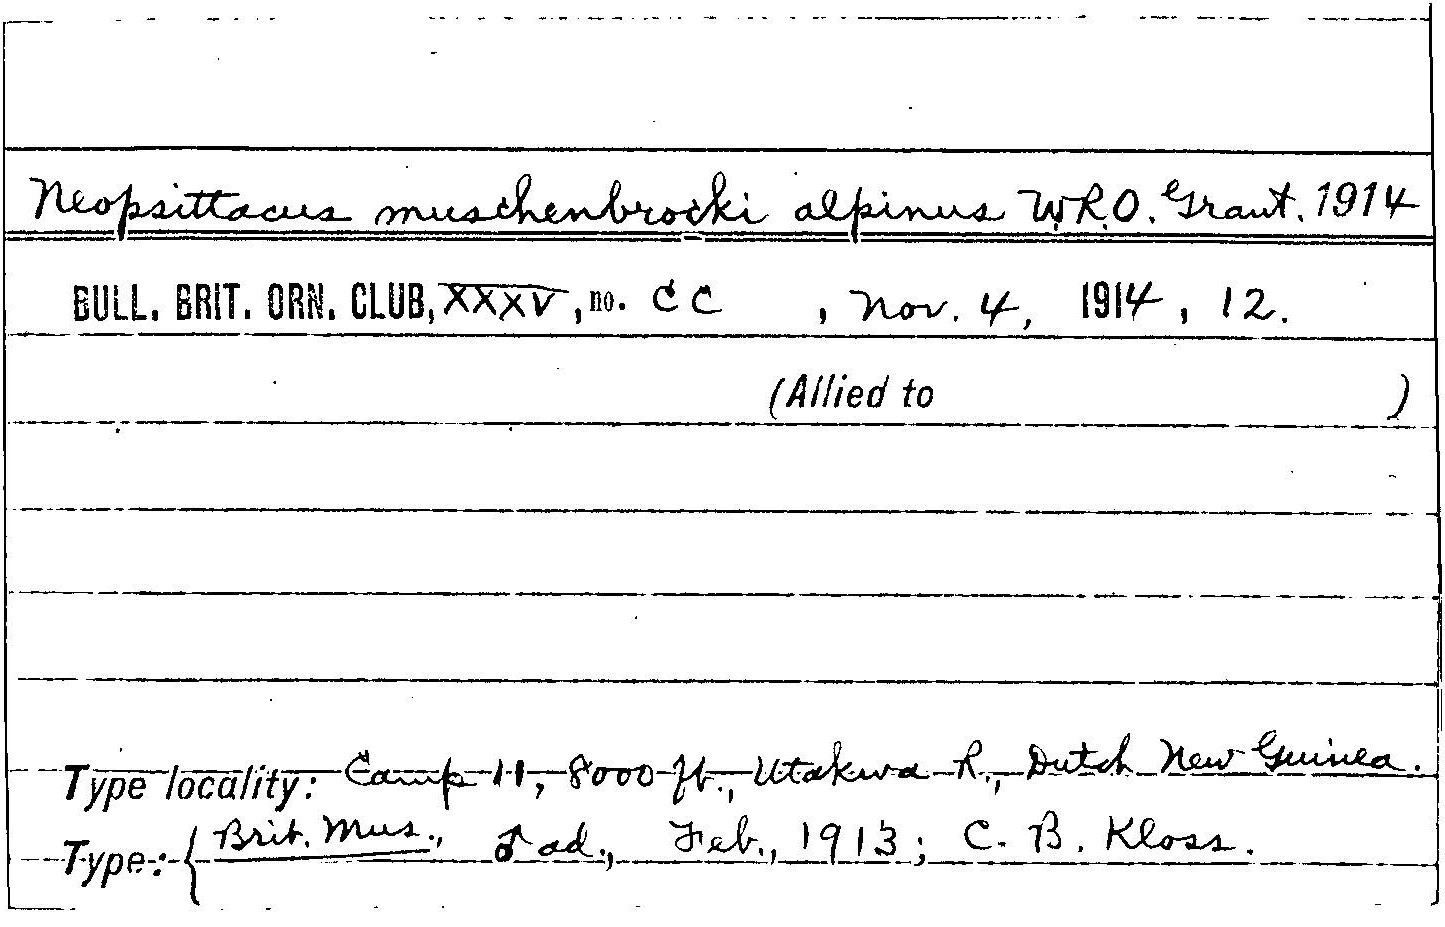 Neopsittacus muschenbrocki alpinus W.R.O. Grant. 1914
BULL. BRIT. ORN. CLUB, XXXV, no. CC , Nov. 4, 1914, 12.
(Allied to )
Type locality: Camp 11, 8000 ft., Utakwa R., Dutch New Guinea.
Type: { Brit. Mus., ♂ ad., Feb., 1913; C. B. Kloss.